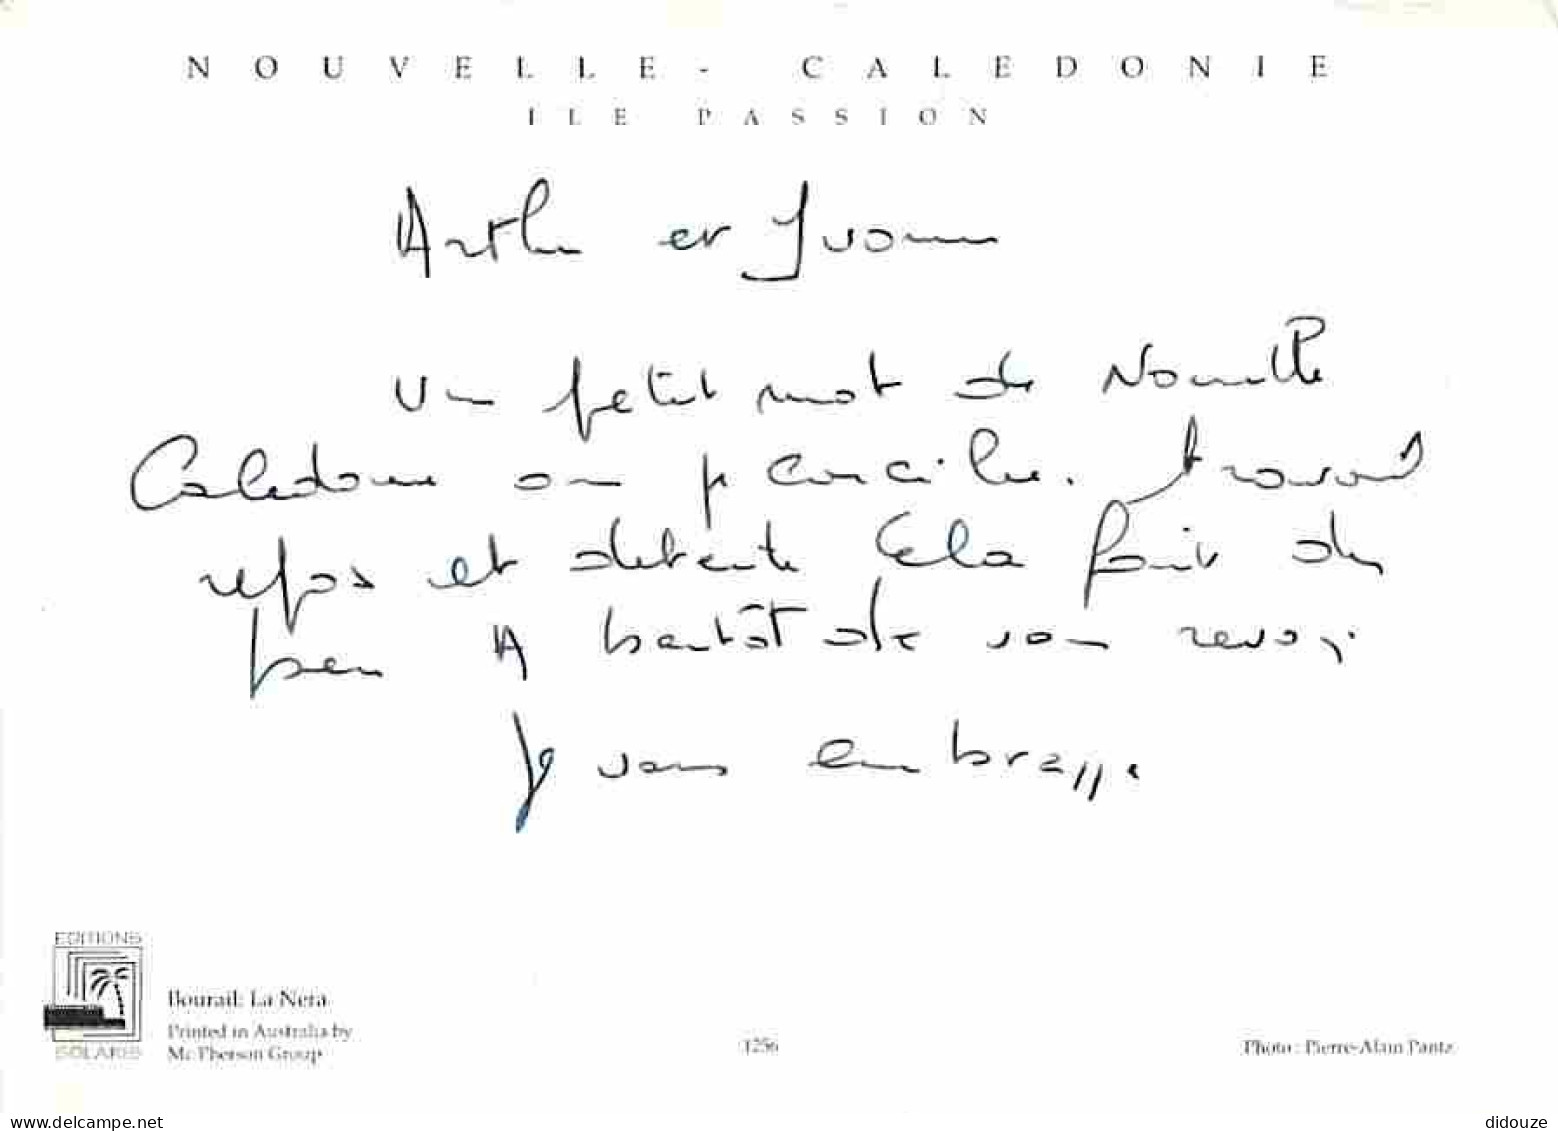 NOUVELLE-CALEDONIE
ILE PASSION
Arthur et Yvonne
Un petit mot de Nouvelle
Caledonie on je concilie. travail
repos et detente Cela fait du
bien A bientôt de vous revoir
Je vous embrasse
EDITIONS
SOLARIS
Bourail: La Nera
Printed in Australia by
Mc Pherson Group
1256
Photo : Pierre-Alain Pantz
www.delcampe.net
didouze